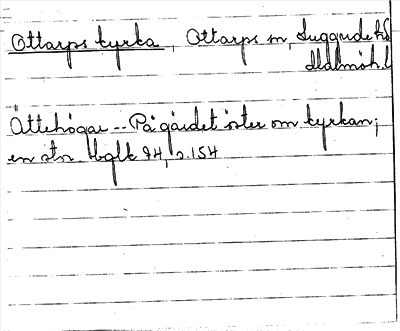 Ottarps kyrka, Ottarps sn, Luggude hd
Malmöh. l.
Ättehögar -- På gärdet öster om kyrkan;
en stor. 94, s. 154